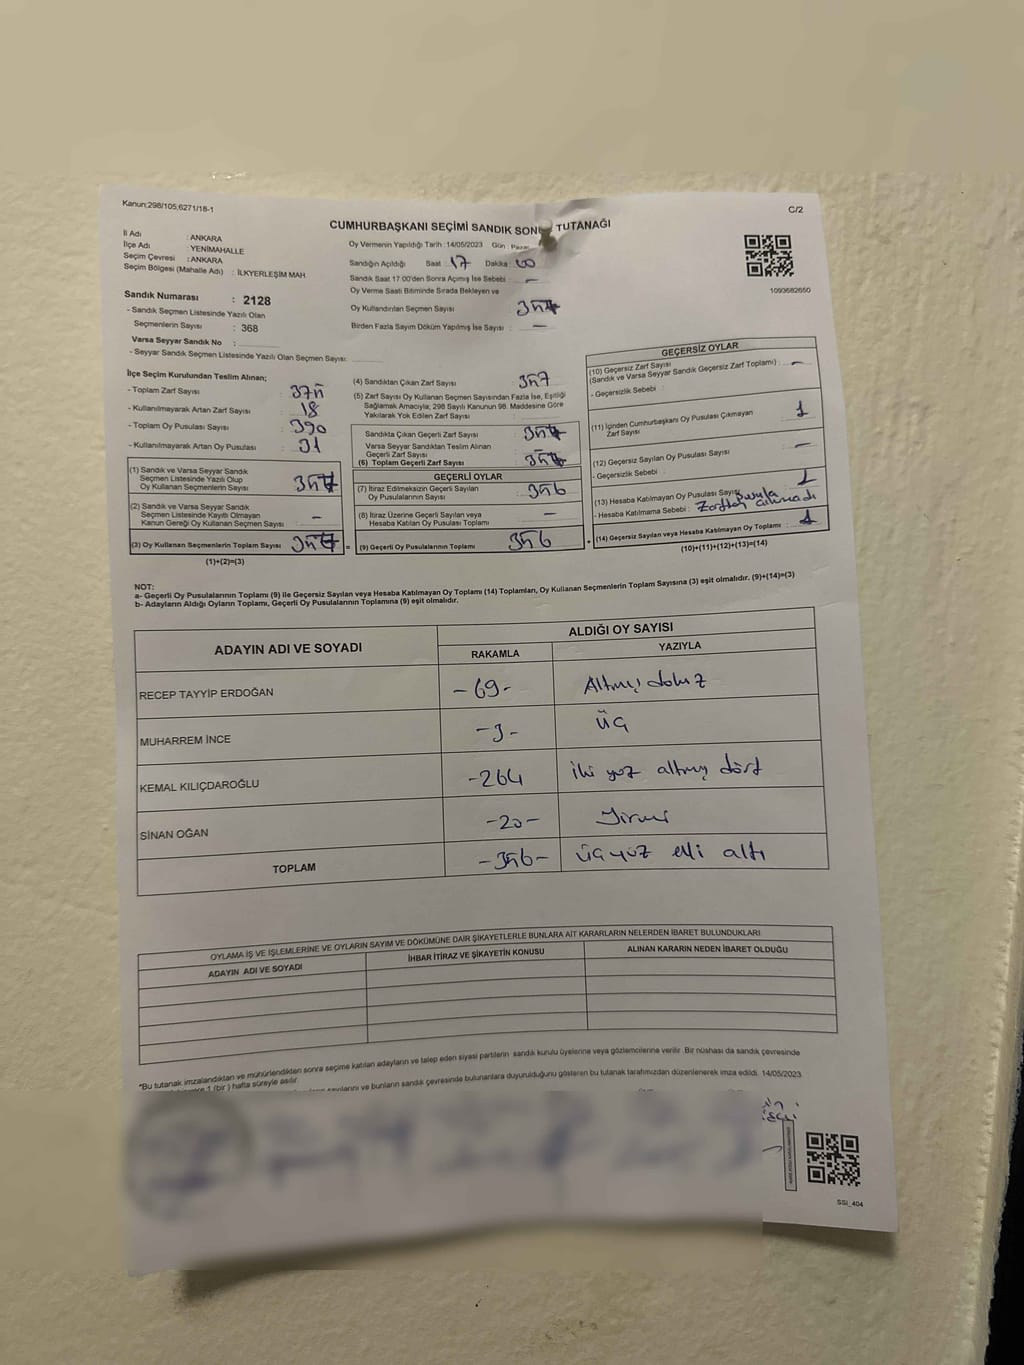 Kanun;298/105,6271/18-1
C/2
CUMHURBAŞKANI SEÇİMİ SANDIK SONUÇ TUTANAĞI
İl Adı : ANKARA
İlçe Adı : YENİMAHALLE
Seçim Çevresi : ANKARA
Seçim Bölgesi (Mahalle Adı) : İLKYERLEŞİM MAH.
Sandık Numarası : 2128
- Sandık Seçmen Listesinde Yazılı Olan
Seçmenlerin Sayısı : 368
Varsa Seyyar Sandık No :
- Seyyar Sandık Seçmen Listesinde Yazılı Olan Seçmen Sayısı:
Oy Vermenin Yapıldığı Tarih :14/05/2023 Gün : Pazar
Sandığın Açıldığı Saat : 17 Dakika : 00
Sandık Saat 17:00'den Sonra Açımış İse Sebebi : -
Oy Verme Saati Bitiminde Sırada Bekleyen ve
Oy Kullandırılan Seçmen Sayısı :
Birden Fazla Sayım Döküm Yapılmış İse Sayısı : -
1093682650
İlçe Seçim Kurulundan Teslim Alınan;
- Toplam Zarf Sayısı : 375
- Kullanılmayarak Artan Zarf Sayısı : 18
- Toplam Oy Pusulası Sayısı : 390
- Kullanılmayarak Artan Oy Pusulası : 31
(1) Sandık ve Varsa Seyyar Sandık
Seçmen Listesinde Yazılı Olup
Oy Kullanan Seçmenlerin Sayısı : 357
(2) Sandık ve Varsa Seyyar Sandık
Seçmen Listesinde Kayıtlı Olmayan
Kanun Gereği Oy Kullanan Seçmen Sayısı : -
(3) Oy Kullanan Seçmenlerin Toplam Sayısı : 357
(1)+(2)=(3)
(4) Sandıktan Çıkan Zarf Sayısı : 357
(5) Zarf Sayısı Oy Kullanan Seçmen Sayısından Fazla İse, Eşitliği
Sağlamak Amacıyla; 298 Sayılı Kanunun 98. Maddesine Göre
Yakılarak Yok Edilen Zarf Sayısı :
Sandıkta Çıkan Geçerli Zarf Sayısı : 357
Varsa Seyyar Sandıktan Teslim Alınan
Geçerli Zarf Sayısı :
(6) Toplam Geçerli Zarf Sayısı : 357
GEÇERLİ OYLAR
(7) İtiraz Edilmeksizin Geçerli Sayılan
Oy Pusulalarının Sayısı : 356
(8) İtiraz Üzerine Geçerli Sayılan veya
Hesaba Katılan Oy Pusulası Toplamı : -
= (9) Geçerli Oy Pusulalarının Toplamı : 356
GEÇERSİZ OYLAR
(10) Geçersiz Zarf Sayısı
(Sandık ve Varsa Seyyar Sandık Geçersiz Zarf Toplamı) : -
- Geçersizlik Sebebi :
(11) İçinden Cumhurbaşkanı Oy Pusulası Çıkmayan
Zarf Sayısı : 1
(12) Geçersiz Sayılan Oy Pusulası Sayısı : -
- Geçersizlik Sebebi :
(13) Hesaba Katılmayan Oy Pusulası Sayısı : 1
- Hesaba Katılmama Sebebi :
+ (14) Geçersiz Sayılan veya Hesaba Katılmayan Oy Toplamı : 1
(10)+(11)+(12)+(13)=(14)
NOT:
a- Geçerli Oy Pusulasının Toplamı (9) ile Geçersiz Sayılan veya Hesaba Katılmayan Oy Toplamı (14) Toplamları, Oy Kullanan Seçmenlerin Toplam Sayısına (3) eşit olmalıdır. (9)+(14)=(3)
b- Adayların Aldığı Oyların Toplamı, Geçerli Oy Pusulalarının Toplamına (9) eşit olmalıdır.
ADAYIN ADI VE SOYADI
ALDIĞI OY SAYISI
RAKAMLA
YAZIYLA
RECEP TAYYİP ERDOĞAN -69- Altmış dokuz
MUHARREM İNCE -3- üç
KEMAL KILIÇDAROĞLU -264 iki yüz altmış dört
SİNAN OĞAN -20- Yirmi
TOPLAM -356- üç yüz elli altı
OYLAMA İŞ VE İŞLEMLERİNE VE OYLARIN SAYIM VE DÖKÜMÜNE DAİR ŞİKAYETLERLE BUNLARA AİT KARARLARIN NELERDEN İBARET BULUNDUKLARI
ADAYIN ADI VE SOYADI
İHBAR İTİRAZ VE ŞİKAYETİN KONUSU
ALINAN KARARIN NEDEN İBARET OLDUĞU
*Bu tutanak imzalandıktan ve mühürlendikten sonra seçime katılan adayların ve talep eden siyasi partilerin sandık kurulu üyelerine veya gözlemcilerine verilir .Bir nüshası da sandık çevresinde
1 (bir ) hafta süreyle asılır.
sayılarını ve bunların sandık çevresinde bulunanlara duyurulduğunu gösteren bu tutanak tarafımızdan düzenlenerek imza edildi. 14/05/2023
SSI_404